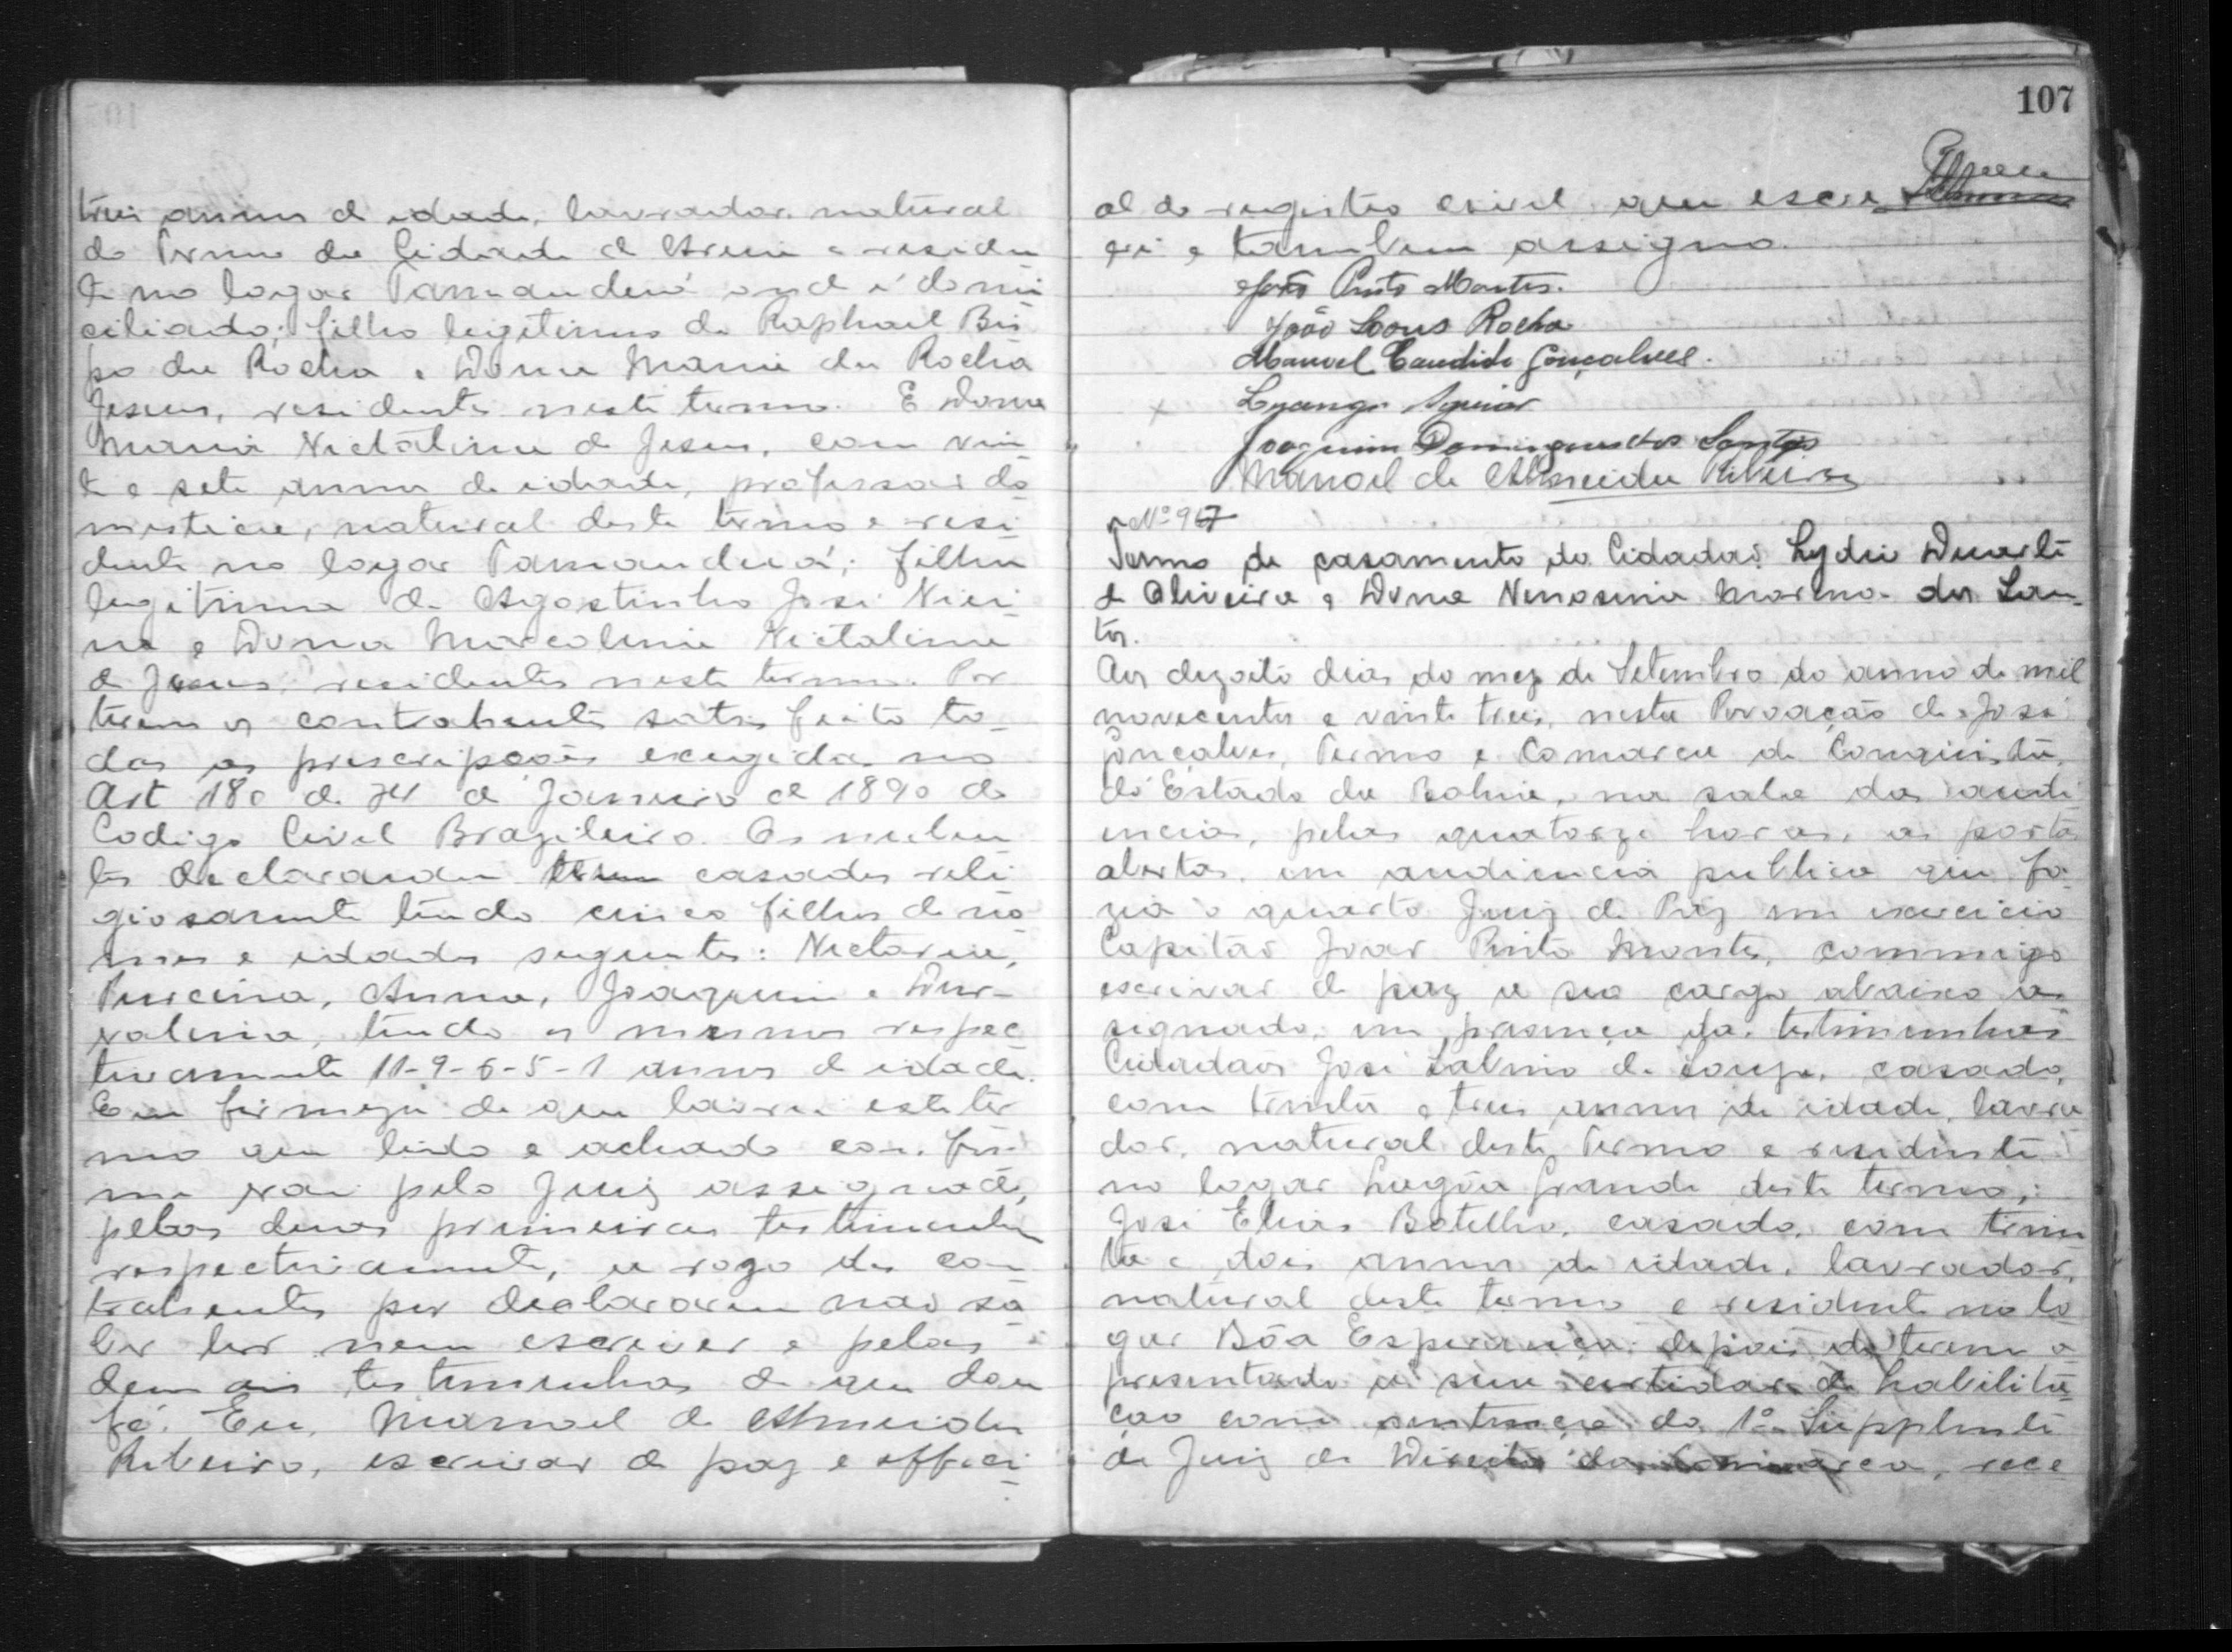 tres annos de idade, lavrador, natural
do Termo da Cidade de Areia e residen
te no logar Tamanduá onde é domi
ciliado; filho legitimo de Raphael Bis
po da Rocha e Dona Maria da Rocha
Jesus, residentes neste termo. E Dona
Maria Nictalina de Jesus, com vin
te e sete annos de idade, professor do
mestica, natural deste termo e resi
dente no logar Tamanduá; filha
legitima de Agostinho José Viei
ra e Dona Marcolina Nictalina
de Jesus, residentes neste termo. Por
terem os contrahentes satisfeito to
das as prescripções exegidas no
Art 180 de 24 de Janeiro de 1890 do
Codigo Civil Brazileiro. Os nuben
tes declararam terem casados reli
giosamente tendo cinco filhos de no
mes e idades seguintes: Nectaria,
Purcina, Anna, Joaquim e Dur-
valina, tendo os mesmos respec
tivamente 11-9-6-5-1 annos de idade.
Em firmeza do que lavrei este ter
mo que lido e achado con. for
me vai pelo Juiz assignado,
pelas duas primeiras testimunhas
respectivamente, a rogo dos con
trahentes por declararem não sa
ber ler nem escrever e pelas
demais testimunhas do que dou
fé. Eu, Manoel de Almeida
Ribeiro, escrivão de paz e offici
107
al do registro civil que escre
vi e tambem assigno.
João Pinto Montes.
João Rocha
Manoel Candido Gonçalves.
x Aguiar
Joaquim Domingues dos Santos
Manoel de Almeida Ribeiro
Nº 967
Termo de casamento do Cidadão Lydio Duarte
de Oliveira e Dona Nenosina dos San
tos.
Aos dezoito dias do mez de Setembro do anno de mil
novecentos e vinte tres, nesta Povoação de José
Gonçalves, Termo e Comarca de Conquista,
do Estado da Bahia, na sala das audi
encias, pelas quatorze horas, as portas
abertas, em audiencia publica que fa
zia o quarto Juiz de Paz em exercicio
Capitão João Pinto Montes, commigo
escrivão de paz a seu cargo abaixo as
signado, em presença das testimunhas
Cidadãos José Sabino de Souza, casado,
com trinta e tres annos de idade, lavra
dor, natural deste Termo e residente
no logar Lagôa Grande deste termo;
José Elias Botelho, casado, com trin
ta e dois annos de idade, lavrador,
natural deste termo e residente no lo
gar Bôa Esperança; depois de terem a
presentado a sua certidão de habilita
ção com sentença do 1º Supplente
do Juiz de Direito da Comarca, rece